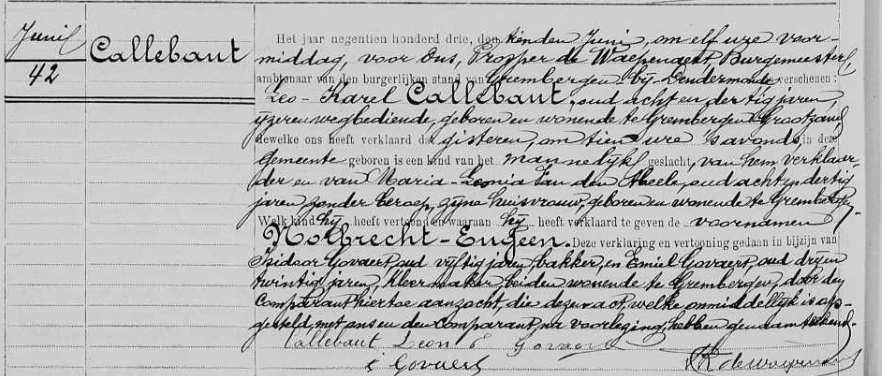 Junij
42
Callebaut
Het jaar negentien honderd drie, den tienden Junij, om elf ure voor-
middag, voor Ons, Prosper de Waepenaert, Burgemeester,
ambtenaar van den burgerlijken stand van Grembergen-bij-Dendermonde, verschenen:
Leo-Karel Callebaut, oud acht en dertig jaren,
ijzerenwegbediende, geboren en wonende te Grembergen Grootzand
dewelke ons heeft verklaard dat gisteren, om tien ure 's avonds, in deze
Gemeente geboren is een kind van het mannelijk geslacht, van hem verklaar-
der en van Maria-Leonia Van den Abeele, oud acht en dertig
jaren, zonder beroep, zijne huisvrouw, geboren en wonende te Grembergen
Welk kind hij heeft vertoond en waaraan hij heeft verklaard te geven de voornamen
Nolbrecht-Eugeen. Deze verklaring en vertooning gedaan in bijzijn van
Isidoor Govaert, oud vijftig jaren, bakker, en Emiel Govaert, oud drij en
twintig jaren, kleermaker, beiden wonende te Grembergen, door den
Comparant hiertoe aanzocht, die dezen act, welke onmiddellijk is op-
gesteld, met ons en den comparant, na voorlezing, hebben genaamteekend.
Callebaut Leon E Govaert
i Govaers